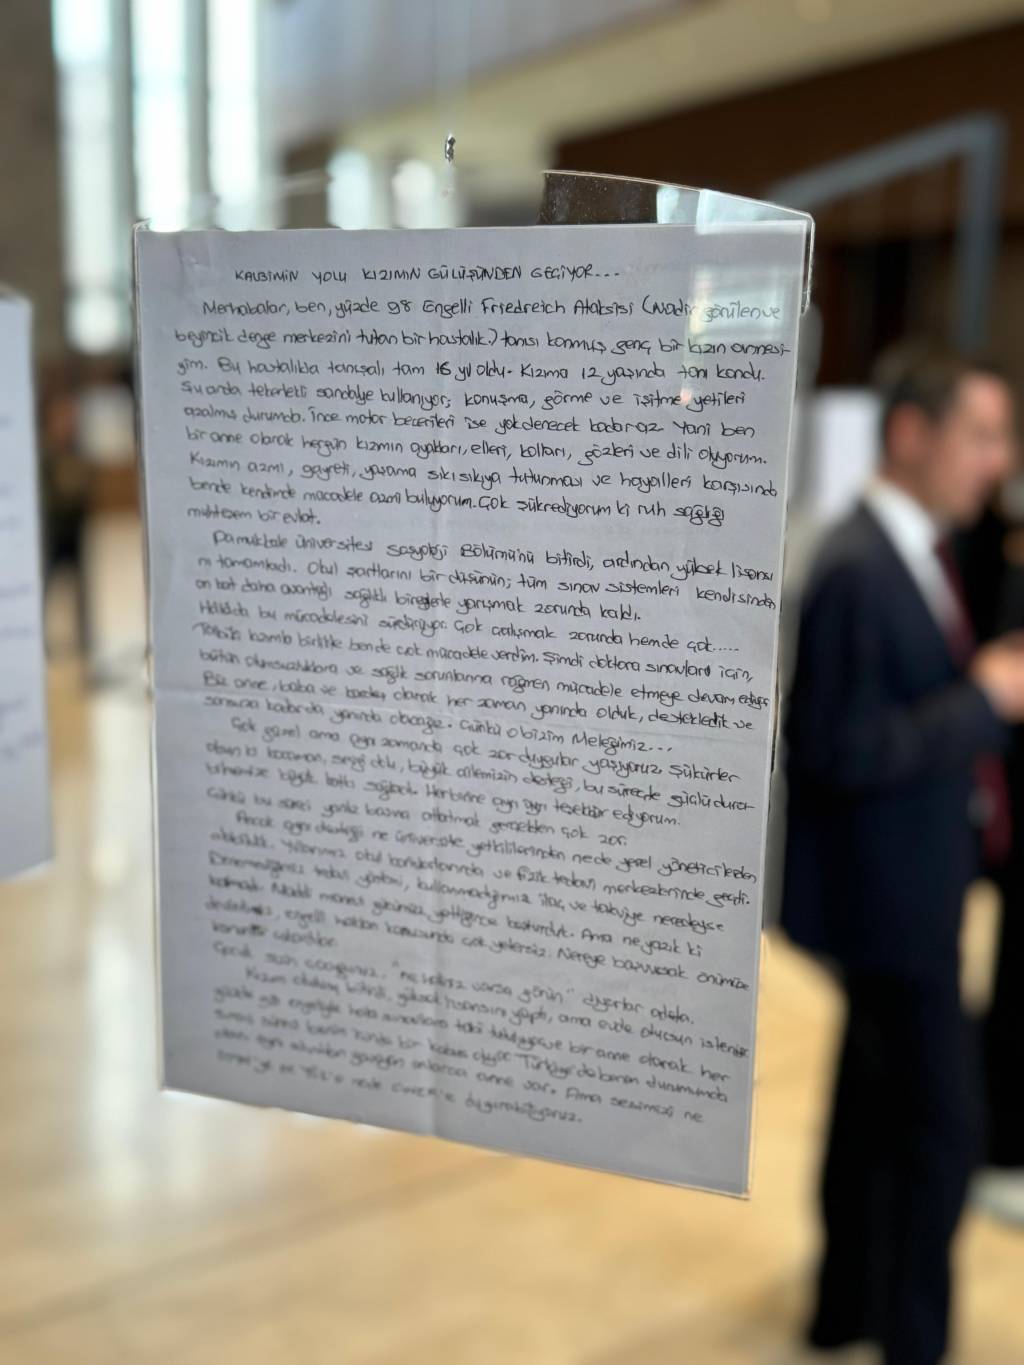 KALBİMİN YOLU KIZIMIN GÜLÜŞÜNDEN GEÇİYOR...
Merhabalar, ben, yüzde 98 Engelli Friedreich Ataksisi (Nadir görülen ve
beyincik denge merkezini tutan bir hastalık.) tanısı konmuş genç bir kızın annesi-
yim. Bu hastalıkla tanışalı tam 16 yıl oldu. Kızıma 12 yaşında tanı kondu.
Şu anda tekerlekli sandalye kullanıyor; konuşma, görme ve işitme yetileri
azalmış durumda. İnce motor becerileri ise yok denecek kadar az. Yani ben
bir anne olarak hergün kızımın ayakları, elleri, kolları, gözleri ve dili oluyorum.
Kızımın azmi, gayreti, yaşama sıkı sıkıya tutunması ve hayalleri karşısında
bende kendimde mücadele azmi buluyorum. Çok şükrediyorum ki ruh sağlığı
muhteşem bir evlat.
Pamukkale Üniversitesi Sosyoloji Bölümü'nü bitirdi, ardından yüksek lisansı
nı tamamladı. Okul şartlarını bir düşünün; tüm sınav sistemleri kendisinden
on kat daha avantajlı sağlıklı bireylerle yarışmak zorunda kaldı.
Halada bu mücadelesini sürdürüyor. Çok çalışmak zorunda hemde çok.....
Tabiki kızımla birlikte bende çok mücadele verdim. Şimdi doktora sınavları için,
bütün olumsuzluklara ve sağlık sorunlarına rağmen mücadele etmeye devam ediyor.
Biz anne, baba ve kardeş olarak her zaman yanında olduk, destekledik ve
sonsuza kadar da yanında olacağız. Çünkü o bizim Meleğimiz...
Çok güzel ama aynı zamanda çok zor duygular yaşıyoruz. Şükürler
olsun ki kocaman, sevgi dolu, büyük ailemizin desteği, bu süreçte güçlü durma-
büyük katkı sağladı. Herbirine ayrı ayrı teşekkür ediyorum.
Çünkü bu süreci yalnız başına atlatmak gerçekten çok zor.
Ancak aynı desteği ne üniversite yetkililerinden nede yerel yöneticilerden
alabildik. Yıllarımız okul koridorlarında ve fizik tedavi merkezlerinde geçti.
Denemediğimiz tedavi yöntemi, kullanmadığımız ilaç ve takviye neredeyse
kalmadı. Maddi manevi gücümüz yettiğince koşturduk. Ama ne yazık ki
devletimiz, engelli hakları konusunda çok yetersiz. Nereye başvursak önümüze
kanunlar çıkardılar.
Çocuk sizin çocuğunuz, "ne haliniz varsa görün" diyorlar adeta.
Kızım okulunu bitirdi, yüksek lisansını yaptı, ama evde otursun isteniyor.
bir anne olarak her
Türkiye'de benim durumumda
olan anne var. Ama sesimizi ne
duyurabiliyoruz.